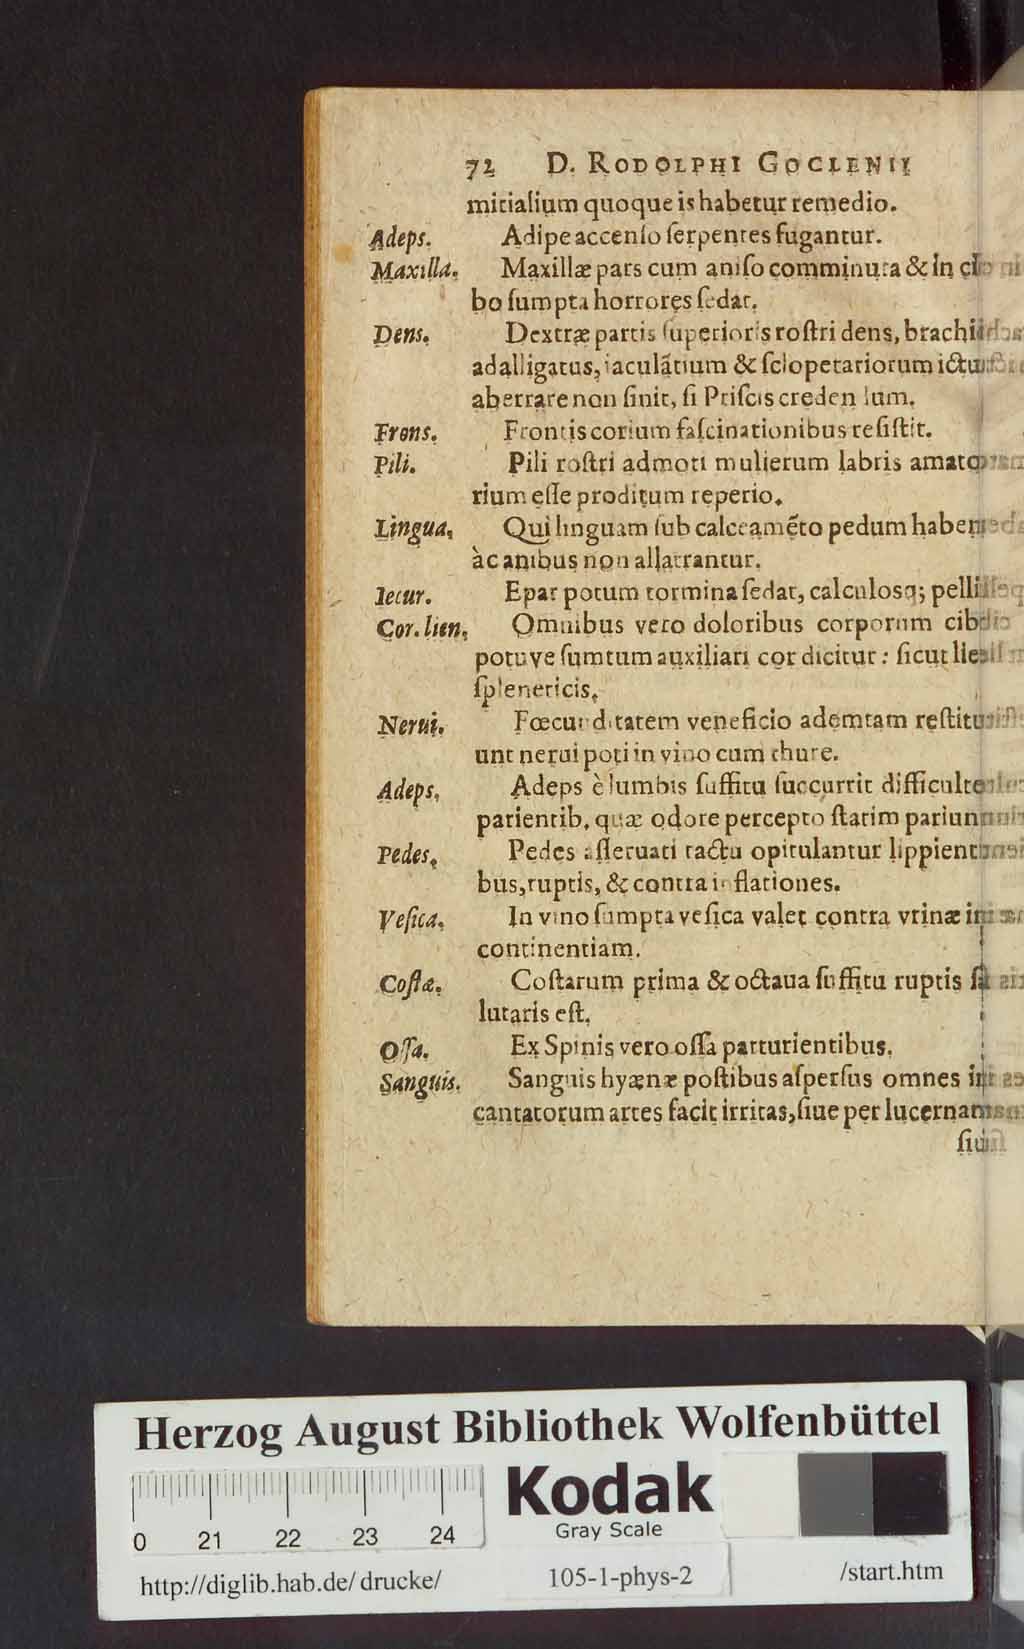 72 D. RODOLPHI GOCLENII
mitialium quoque is habetur remedio.
Adeps. Adipe accenſo ſerpentes fugantur.
Maxilla. Maxillæ pars cum aniſo comminuta & in ci
bo ſumpta horrores ſedat.
Dens. Dextræ partis ſuperioris roſtri dens, brachiis
adalligatus, iaculātium & ſclopetariorum ictu
aberrare non ſinit, ſi Priſcis credendum.
Frons. Frontis corium faſcinationibus reſiſtit.
Pili. Pili roſtri admoti mulierum labris amato
rium eſſe proditum reperio.
Lingua. Qui linguam ſub calceamēto pedum habent
à canibus non allatrantur.
Iecur. Epar potum tormina ſedat, calculosq; pellit
Cor. lien. Omnibus vero doloribus corporum cibo
potuve ſumtum auxiliari cor dicitur: ſicut lien
ſpleneticis.
Nerui. Fœcunditatem veneficio ademtam reſtitu
unt nerui poti in vino cum thure.
Adeps. Adeps è lumbis ſuffitu ſuccurrit difficulter
parientib. quæ odore percepto ſtatim pariunt
Pedes. Pedes aſſeruati tactu opitulantur lippienti
bus, ruptis, & contra inflationes.
Veſica. In vino ſumpta veſica valet contra vrinæ in
continentiam.
Coſtæ. Coſtarum prima & octaua ſuffitu ruptis ſa
lutaris eſt.
Oſſa. Ex Spinis vero oſſa parturientibus.
Sanguis. Sanguis hyænæ poſtibus aſperſus omnes in
cantatorum artes facit irritas, ſiue per lucernam
ſiu
Herzog August Bibliothek Wolfenbüttel
0 21 22 23 24
Kodak
Gray Scale
http://diglib.hab.de/drucke/ 105-1-phys-2 /start.htm